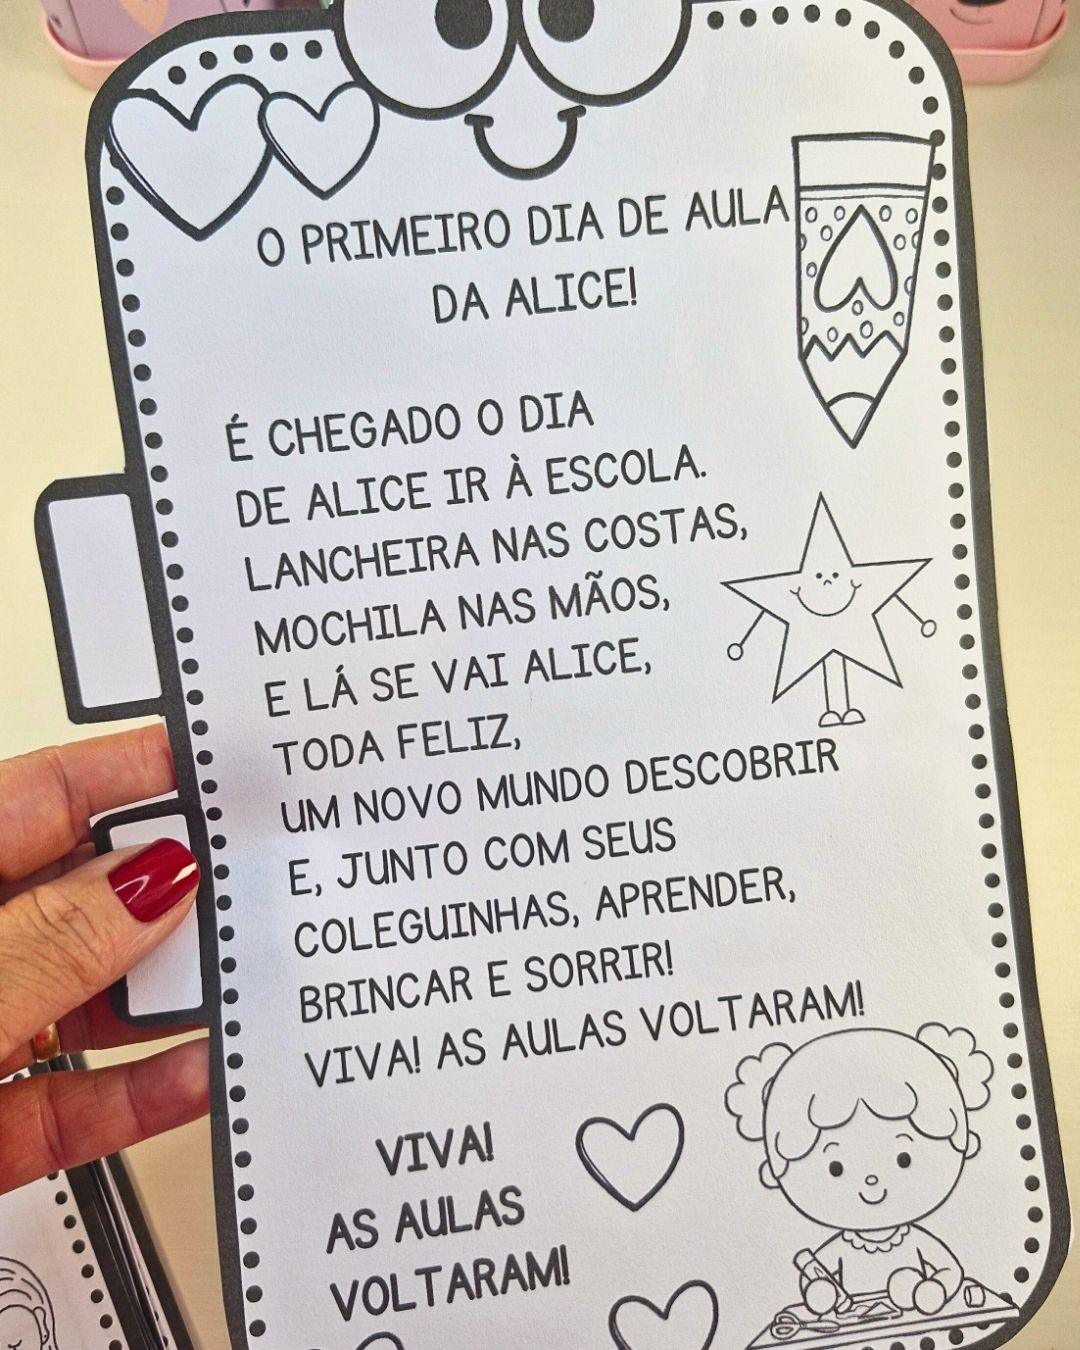 O PRIMEIRO DIA DE AULA
DA ALICE!
É CHEGADO O DIA
DE ALICE IR À ESCOLA.
LANCHEIRA NAS COSTAS,
MOCHILA NAS MÃOS,
E LÁ SE VAI ALICE,
TODA FELIZ,
UM NOVO MUNDO DESCOBRIR
E, JUNTO COM SEUS
COLEGUINHAS, APRENDER,
BRINCAR E SORRIR!
VIVA! AS AULAS VOLTARAM!
VIVA!
AS AULAS
VOLTARAM!